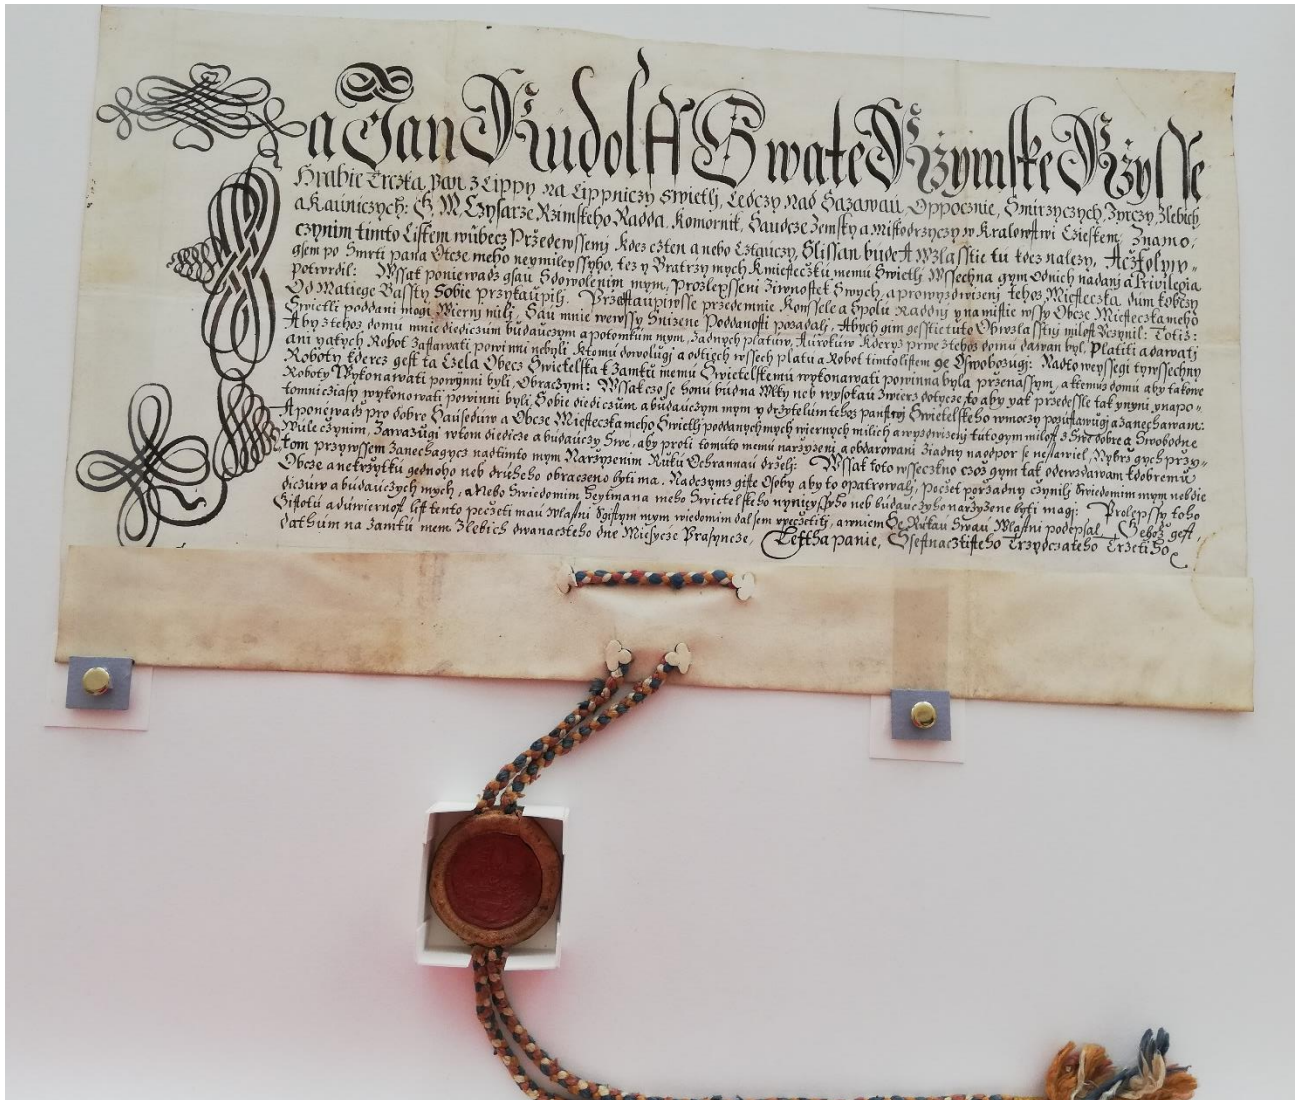 Ja Jan Rudolff Swate Rzymske Rzysse
Hrabie Trczka, Pan z Lippy na Lippniczy Swietlj, Ledczy nad Sazawau, Oppocznie, Smirzyczych, Zyrczy, Zlebich
a Kauniczych: G. M. Czysarze Rzimskeho Radda, Komornik, Saudcze Zemsky a Mistodrzyczy w Kralowstwi Cziestem, Znamo,
czynim timto Listem wubecz Przedewssemi, Kdez czten a nebo cztauczy, Slissan bude A wzlasstie tu kdez nalezy, Aczkolyw,,
gsem po Smrti pana Otcze meho neymileyssyho, tez y Bratrzy mych Kmiesteczku memu Swietlj Wssechna gym Odnich nadanj a Privilegia
potwrdil: Wssak poniewadz gsau Sdowolenim mym, Prozlepsseni Ziwnostek Swych, a prowyzdwizenj tehoz Miesteczka, dum kdbczy
Od Matiege Bassty Sobie Przykaupilj. Przistaupiwsse przedemnie Konssele a Spolu Raddnj y namistie wssy Obcze Miesteczka meho
Swietli poddani mogi Wiernj milj, Sau mnie wewssy Snizene Poddanosti pozadali, Abych gim gesstie tuto Obwzlasstnj milost Vczynil: Totiz:
Aby ztehoz domu mnie diediczum budauczym a potomkum mym, zadnych platuw, Aurokuw, kderyz prwe ztehoz domu dawan byl, Platiti a dawatj
ani yakych Robot zastawati powinni nebyli, ktomu dowolugi a odtiech wssech platu a Robot timto listem ge Oswobozugi: Nadto weyssegi ty wssechny
Roboty kderez gest ta Czela Obecz Swietelska k Zamku memu Swietelskemu wykonawati powinna byla, przenassym, a ktemuz domu aby takowe
Roboty Wykonawati powynni byli, Obraczym: Wssak czo se honu budna Wlky neb wysokau zwierz dotycze, to aby yak przedessle tak ynyni ynapo,,
tomnieczasy wykonowati powinni byli, Sobie diediczum a budauczym mym y drzytelum tehoz panstwj Swietelskeho wmoczy pozustawugi a zanechawam:
A ponewadz pro dobre Sausedůw a Obcze Miesteczka meho Swietlj poddanych mych wiernych milich a wyzdwizenj tuto gym milost z Swe dobre a Swobodne
Wule czynim, Zawazugi wtom diedicze a budauczy Swe, aby proti tomuto memu narzyzenj a obdarowani Ziadny naodpor se nestawiel, Nybrz gych przy,,
tom przywssem Zanechagycz nadtimto mym Narzyzenim Ruku Ochrannau drzelj: Wssak toto wsseczkno czoz gym tak odewzdawam kdobremu
Obcze a nekzytku gednoho neb druheho obraczeno byti ma. Nadczymz giste Osoby aby to opatrowalj, Poczet porzadny czynilj Swiedomim mym neb die
diczuw a budauczych mych, a Nebo Swiedomim Heytmana meho Swietelskeho nynieyssyho neb budauczyho narzyzene byti magi: Prolepssy toho
Gistotu a duwiernost list tento peczeti mau wlastni Sgistym mym wiedomim dal sem vpeczetitj, a wniem Se Rukau Swau Wlastni podepsal, Gehoz gest,
dathum na zamku mem Zlebich dwanacztého dne Miesycze Prasyncze, Lettha panie, Ssestnacztisteho Trzydczateho Trzetiho